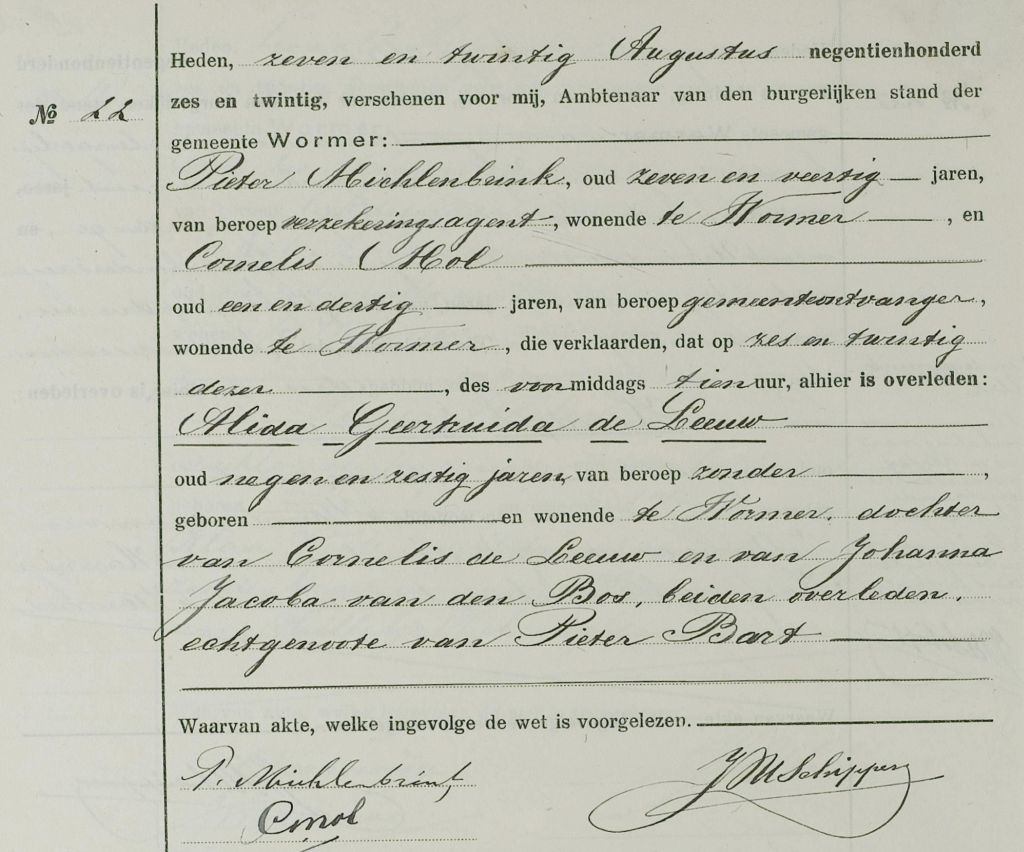 Heden, zeven en twintig Augustus negentienhonderd
No 22
zes en twintig, verschenen voor mij, Ambtenaar van den burgerlijken stand der
gemeente Wormer:
Pieter Michlenbrink, oud zeven en veertig jaren,
van beroep verzekeringsagent, wonende te Wormer, en
Cornelis Mol
oud een en dertig jaren, van beroep gemeenteontvanger,
wonende te Wormer, die verklaarden, dat op zes en twintig
dezer, des voormiddags tien uur, alhier is overleden:
Alida Geertruida de Leeuw
oud negen en zestig jaren, van beroep zonder,
geboren en wonende te Wormer, dochter
van Cornelis de Leeuw en van Johanna
Jacoba van den Bos, beiden overleden,
echtgenoote van Pieter Bart
Waarvan akte, welke ingevolge de wet is voorgelezen.
P. Michlenbrink
JM Schipper
CMol